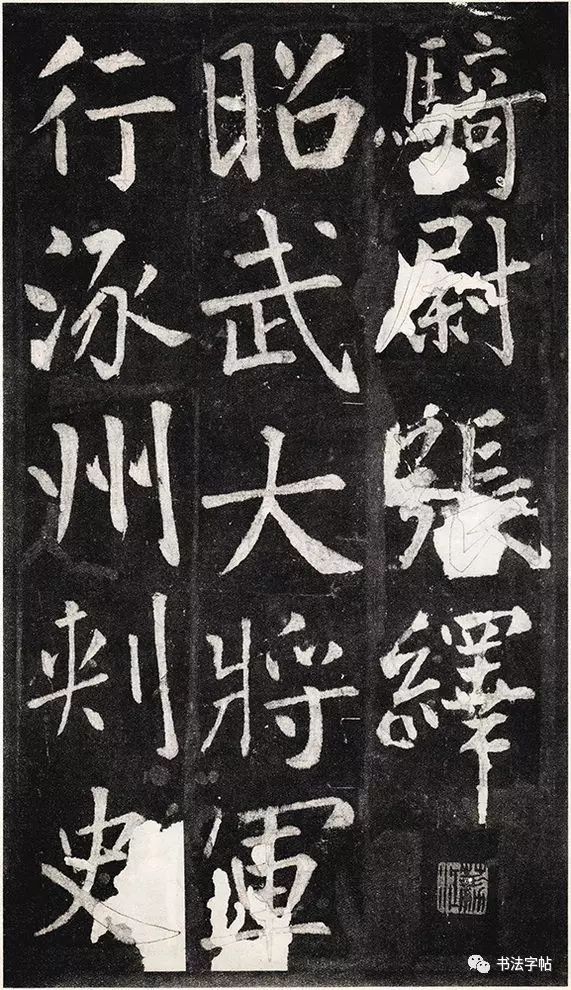 騎尉張繹
昭武大將軍
行涿州刾史
书法字帖